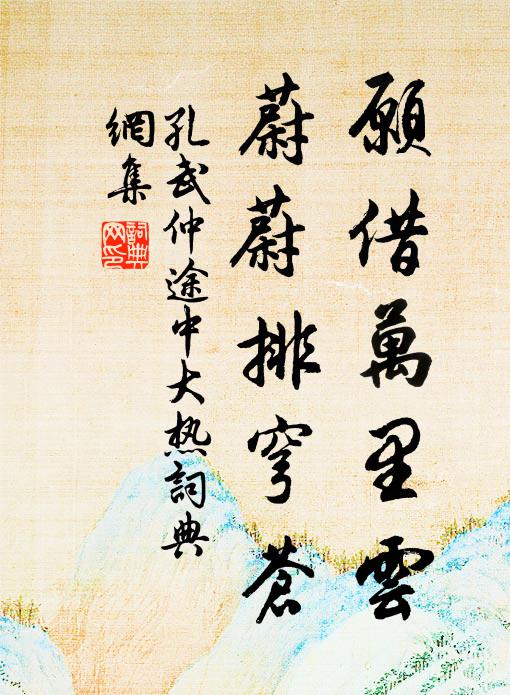 願借萬里雲
蔚蔚排穹蒼
孔武仲途中大热詞典
網集
詞典
网印